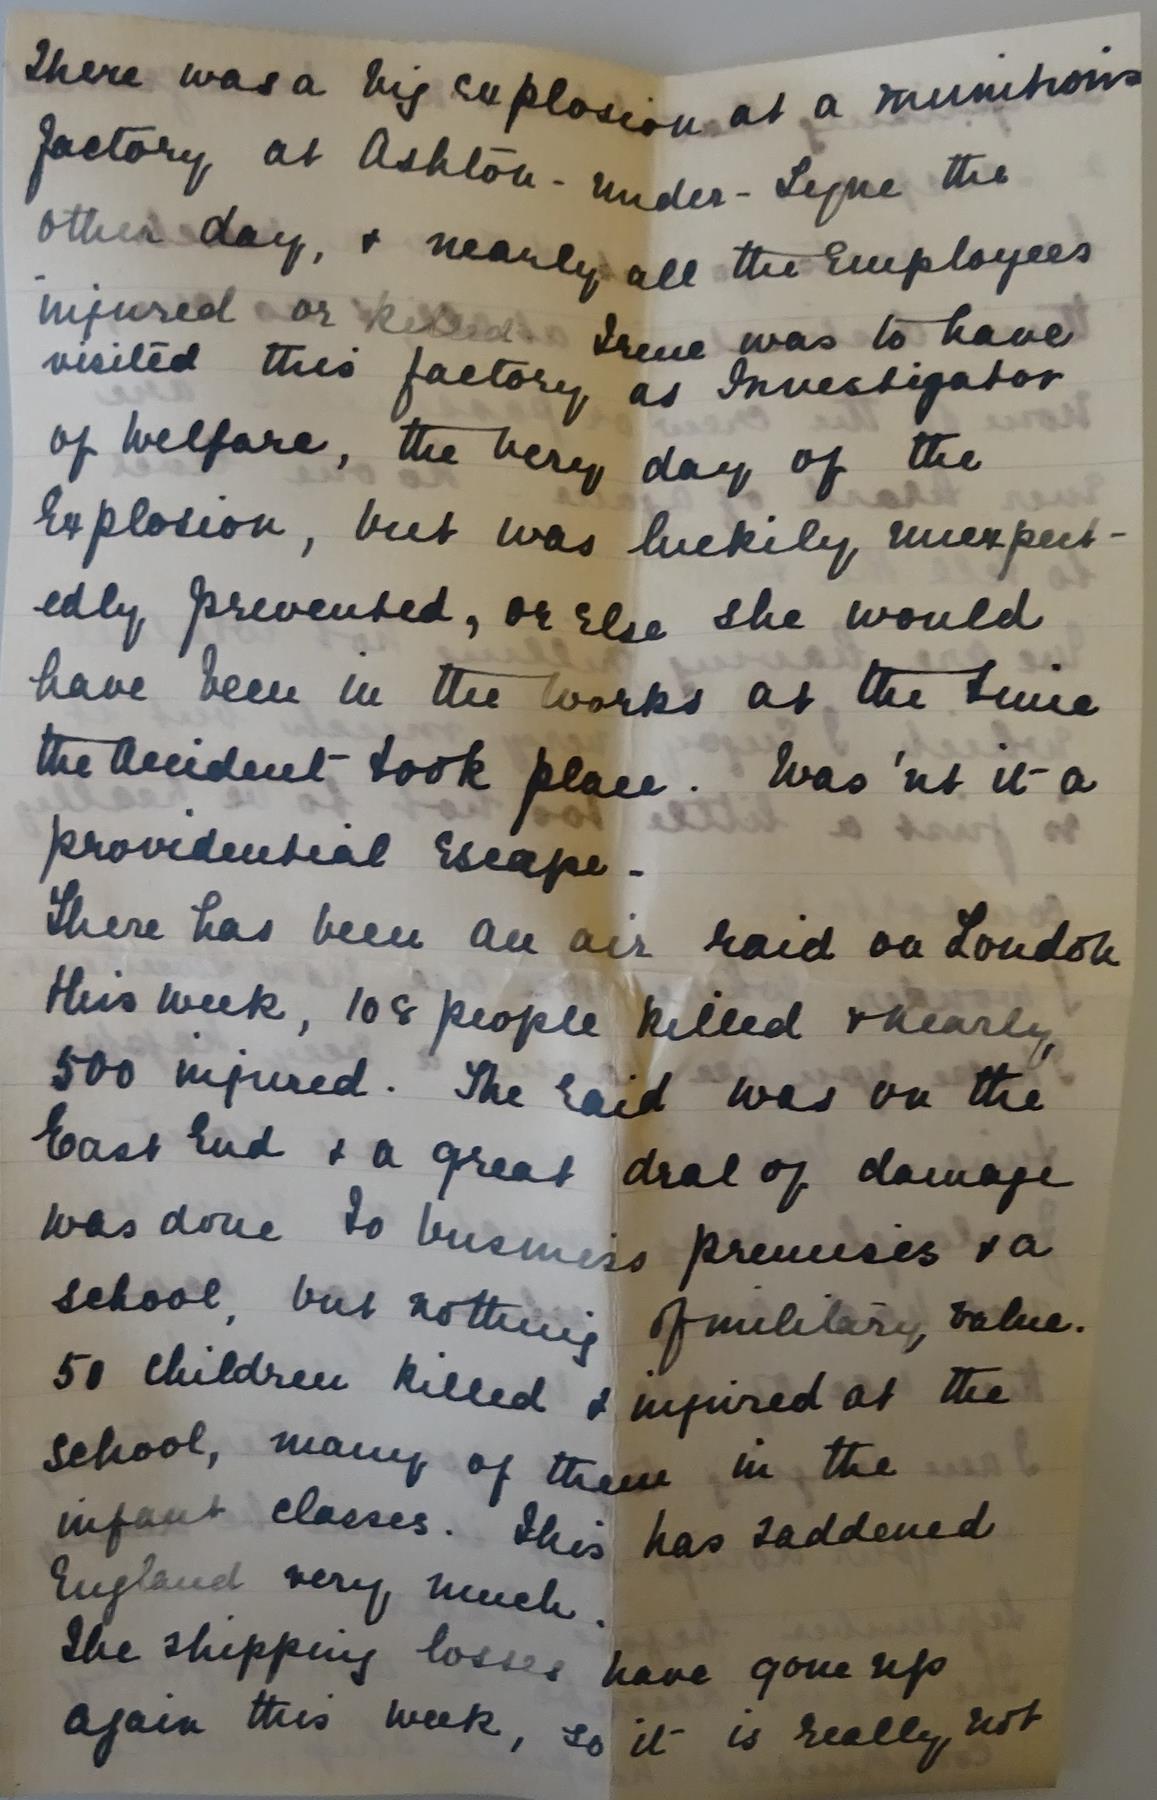 There was a big explosion at a munitions
factory at Ashton-under-Lyne the
other day, & nearly all the Employees
injured or killed. Irene was to have
visited this factory as Investigator
of Welfare, the very day of the
Explosion, but was luckily unexpect-
edly prevented, or Else she would
have been in the works at the time
the accident took place. Was'nt it a
providential Escape.
There has been an air raid on London
this week, 108 people killed & nearly
500 injured. The Raid was on the
East End & a great deal of damage
was done to business premises & a
school, but nothing of military value.
50 children killed & injured at the
school, many of them in the
infant classes. This has saddened
England very much.
The shipping losses have gone up
again this week, so it is really not